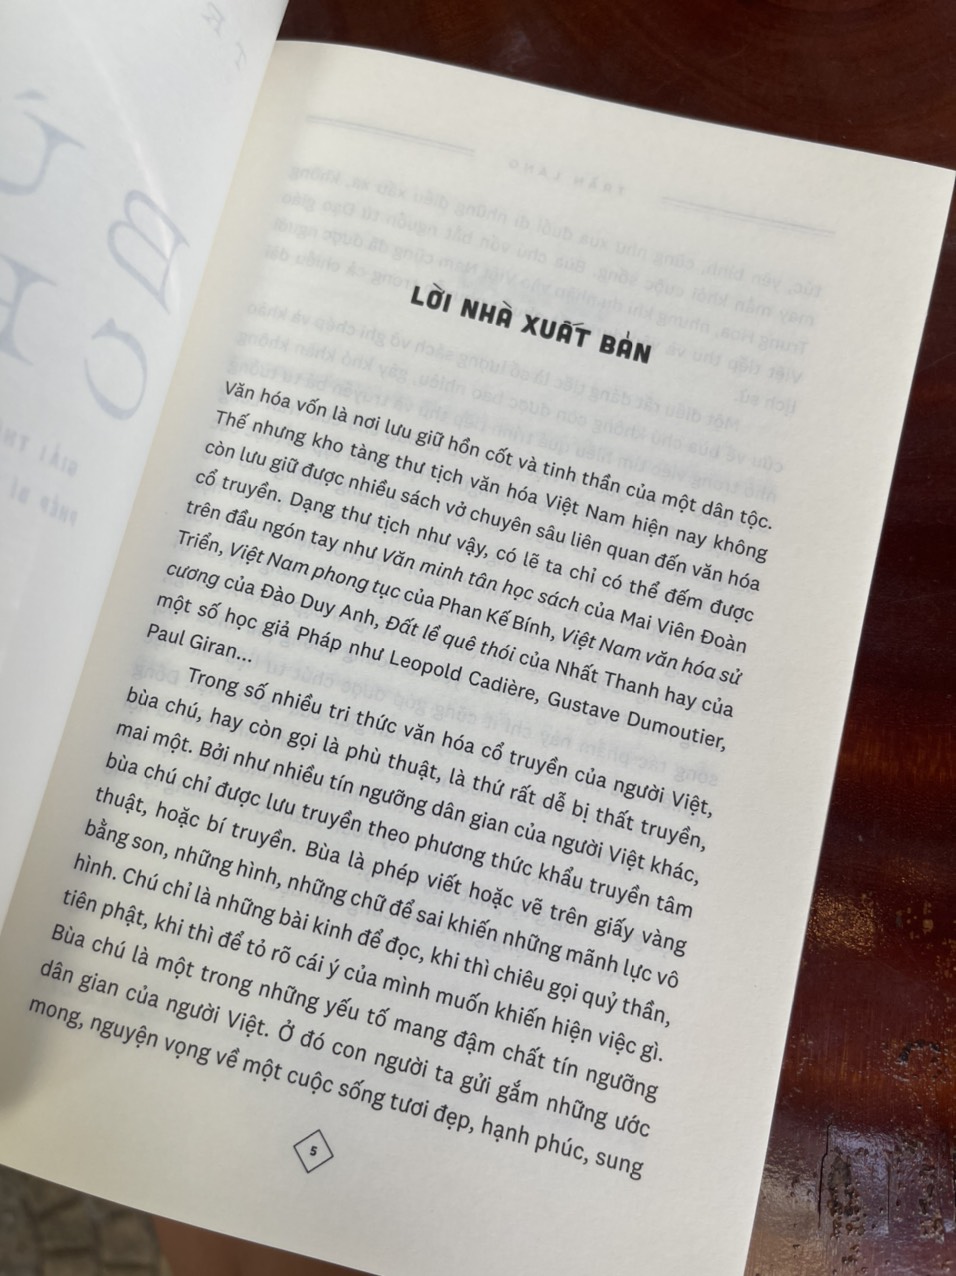 LỜI NHÀ XUẤT BẢN
Văn hóa vốn là nơi lưu giữ hồn cốt và tinh thần của một dân tộc.
Thế nhưng kho tàng thư tịch văn hóa Việt Nam hiện nay không
còn lưu giữ được nhiều sách vở chuyên sâu liên quan đến văn hóa
cổ truyền. Dạng thư tịch như vậy, có lẽ ta chỉ có thể đếm được
trên đầu ngón tay như Văn minh tân học sách của Mai Viên Đoàn
Triển, Việt Nam phong tục của Phan Kế Bính, Việt Nam văn hóa sử
cương của Đào Duy Anh, Đất lề quê thói của Nhất Thanh hay của
một số học giả Pháp như Leopold Cadière, Gustave Dumoutier,
Paul Giran...
Trong số nhiều tri thức văn hóa cổ truyền của người Việt,
bùa chú, hay còn gọi là phù thuật, là thứ rất dễ bị thất truyền,
mai một. Bởi như nhiều tín ngưỡng dân gian của người Việt khác,
bùa chú chỉ được lưu truyền theo phương thức khẩu truyền tâm
thuật, hoặc bí truyền. Bùa là phép viết hoặc vẽ trên giấy vàng
bằng son, những hình, những chữ để sai khiến những mãnh lực vô
hình. Chú chỉ là những bài kinh để đọc, khi thì chiêu gọi quỷ thần,
tiên phật, khi thì để tỏ rõ cái ý của mình muốn khiến hiện việc gì.
Bùa chú là một trong những yếu tố mang đậm chất tín ngưỡng
dân gian của người Việt. Ở đó con người ta gửi gắm những ước
mong, nguyện vọng về một cuộc sống tươi đẹp, hạnh phúc, sung
5